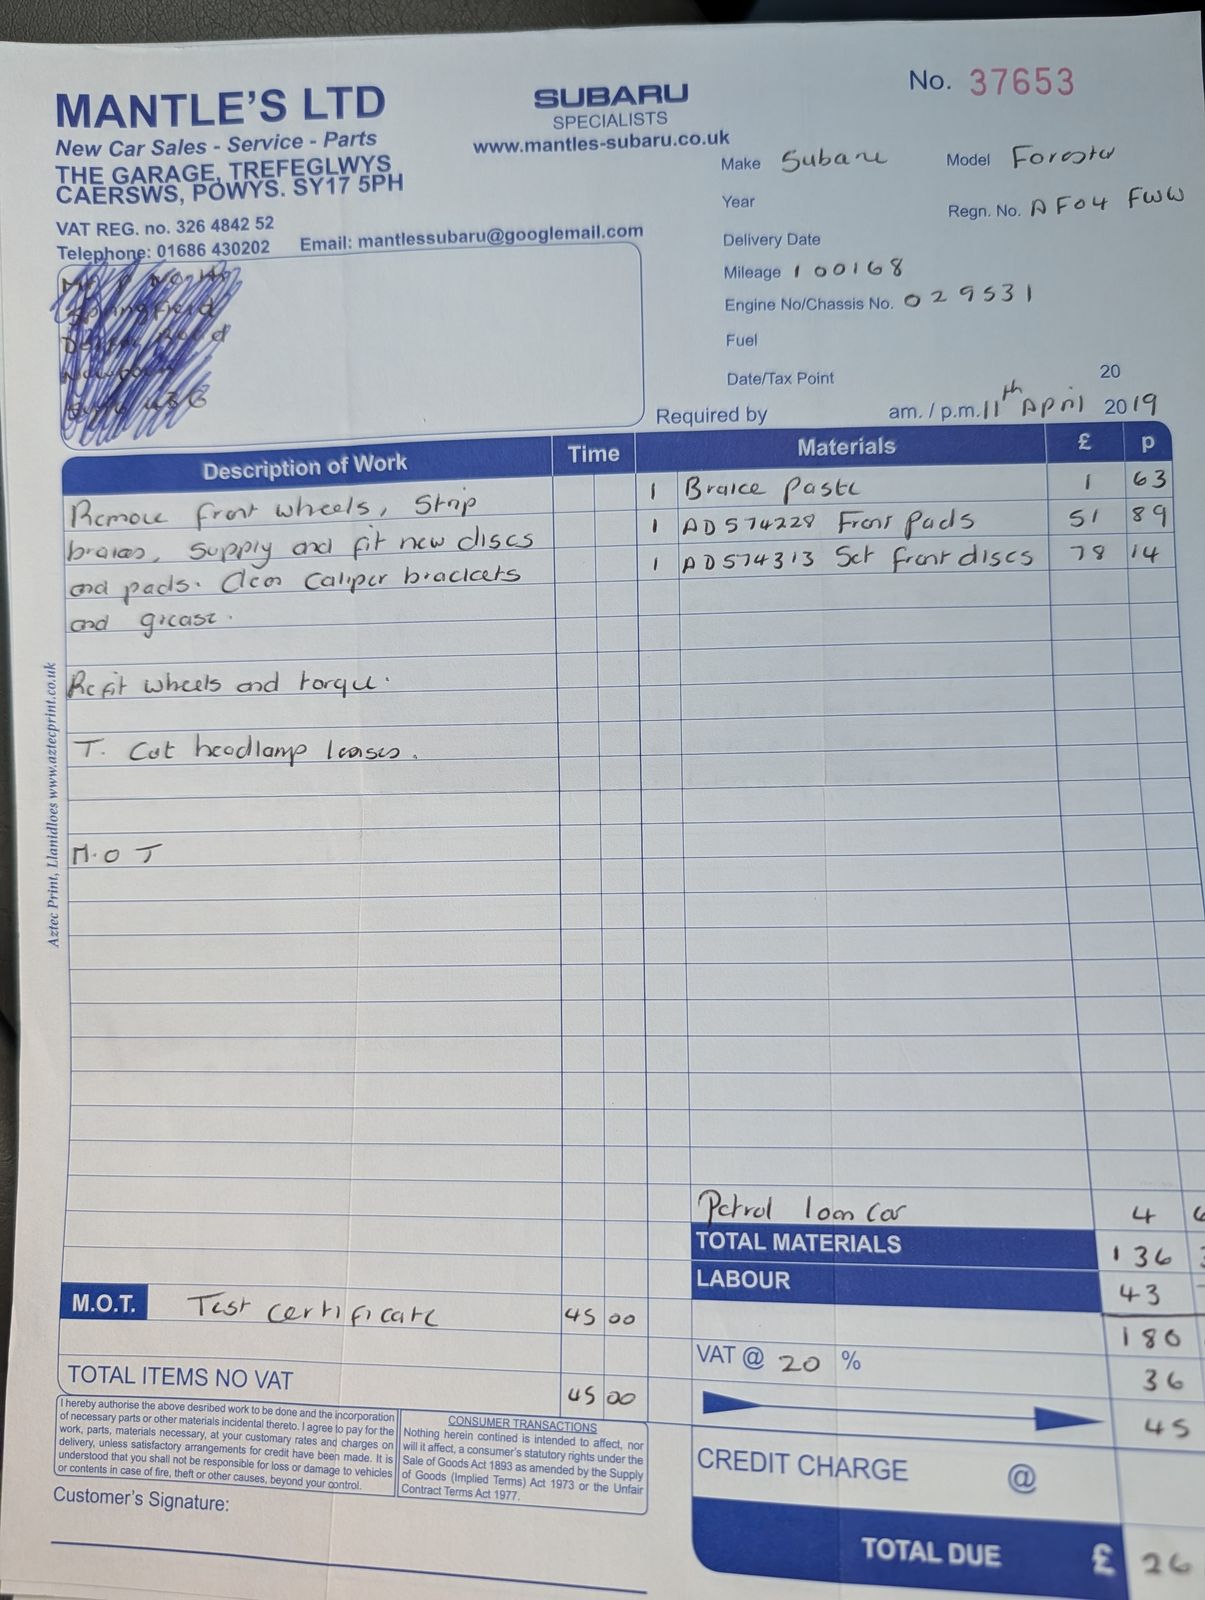 No. 37653
MANTLE'S LTD
New Car Sales - Service - Parts
THE GARAGE, TREFEGLWYS
CAERSWS, POWYS. SY17 5PH
VAT REG. no. 326 4842 52
Telephone: 01686 430202 Email: mantlessubaru@googlemail.com
SUBARU
SPECIALISTS
www.mantles-subaru.co.uk
Make Subaru Model Forester
Year Regn. No. AF04 FWW
Delivery Date
Mileage 100168
Engine No/Chassis No. 029531
Fuel
Date/Tax Point 20
Required by am. / p.m. 11th April 2019
Description of Work Time Materials £ p
Remove front wheels, Strip 1 Brake paste 1 63
brakes, supply and fit new discs 1 ADS74228 Front Pads 51 89
and pads. Clean Caliper brackets 1 ADS74313 Set front discs 78 14
and grease.
Refit wheels and torque.
T. Cut headlamp lenses.
M.O T
Aztec Print, Llanidloes www.aztecprint.co.uk
Petrol loan car 4
TOTAL MATERIALS 136
LABOUR 43
180
M.O.T. Test certificate 45 00
VAT @ 20 % 36
TOTAL ITEMS NO VAT 45 00
45
CREDIT CHARGE @
TOTAL DUE £ 26
I hereby authorise the above desribed work to be done and the incorporation
of necessary parts or other materials incidental thereto. I agree to pay for the
work, parts, materials necessary, at your customary rates and charges on
delivery, unless satisfactory arrangements for credit have been made. It is
understood that you shall not be responsible for loss or damage to vehicles
or contents in case of fire, theft or other causes, beyond your control.
CONSUMER TRANSACTIONS
Nothing herein contined is intended to affect, nor
will it affect, a consumer's statutory rights under the
Sale of Goods Act 1893 as amended by the Supply
of Goods (Implied Terms) Act 1973 or the Unfair
Contract Terms Act 1977.
Customer's Signature: